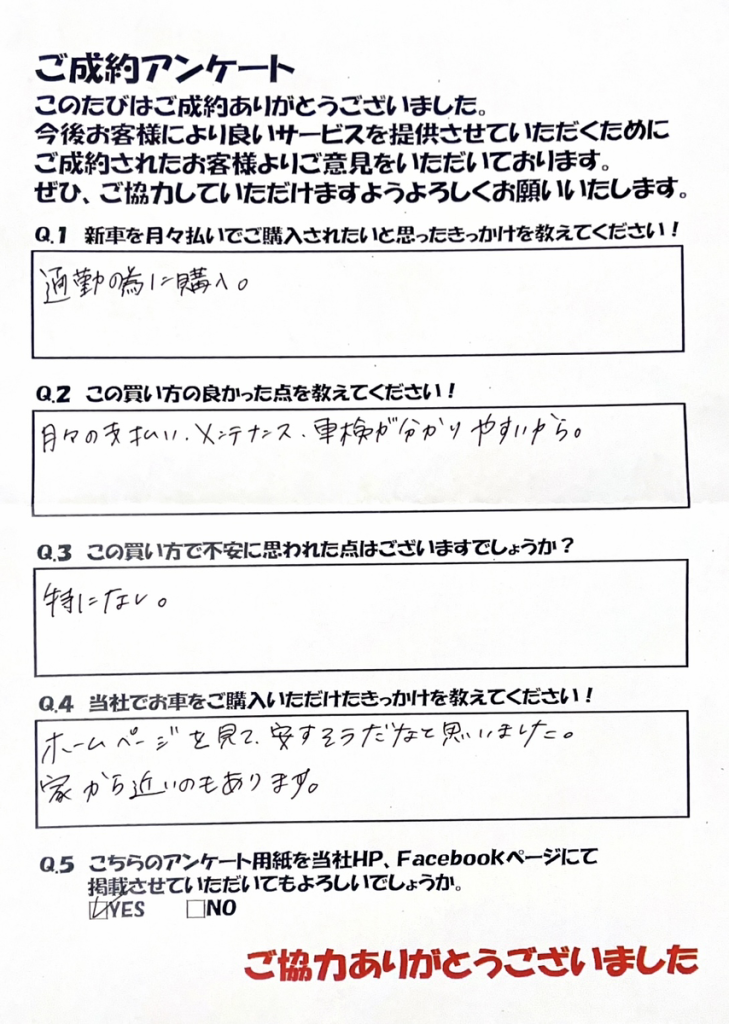 ご成約アンケート
このたびはご成約ありがとうございました。
今後お客様により良いサービスを提供させていただくために
ご成約されたお客様よりご意見をいただいております。
ぜひ、ご協力していただけますようよろしくお願いいたします。
Q.1 新車を月々払いでご購入されたいと思ったきっかけを教えてください！
通勤の為に購入。
Q.2 この買い方の良かった点を教えてください！
月々の支払い、メンテナンス、車検が分かりやすいから。
Q.3 この買い方で不安に思われた点はございますでしょうか？
特にない。
Q.4 当社でお車をご購入いただけたきっかけを教えてください！
ホームページを見て、安すそうだなと思いました。
家から近いのもあります。
Q.5 こちらのアンケート用紙を当社HP、Facebookページにて
掲載させていただいてもよろしいでしょうか。
☑YES □NO
ご協力ありがとうございました